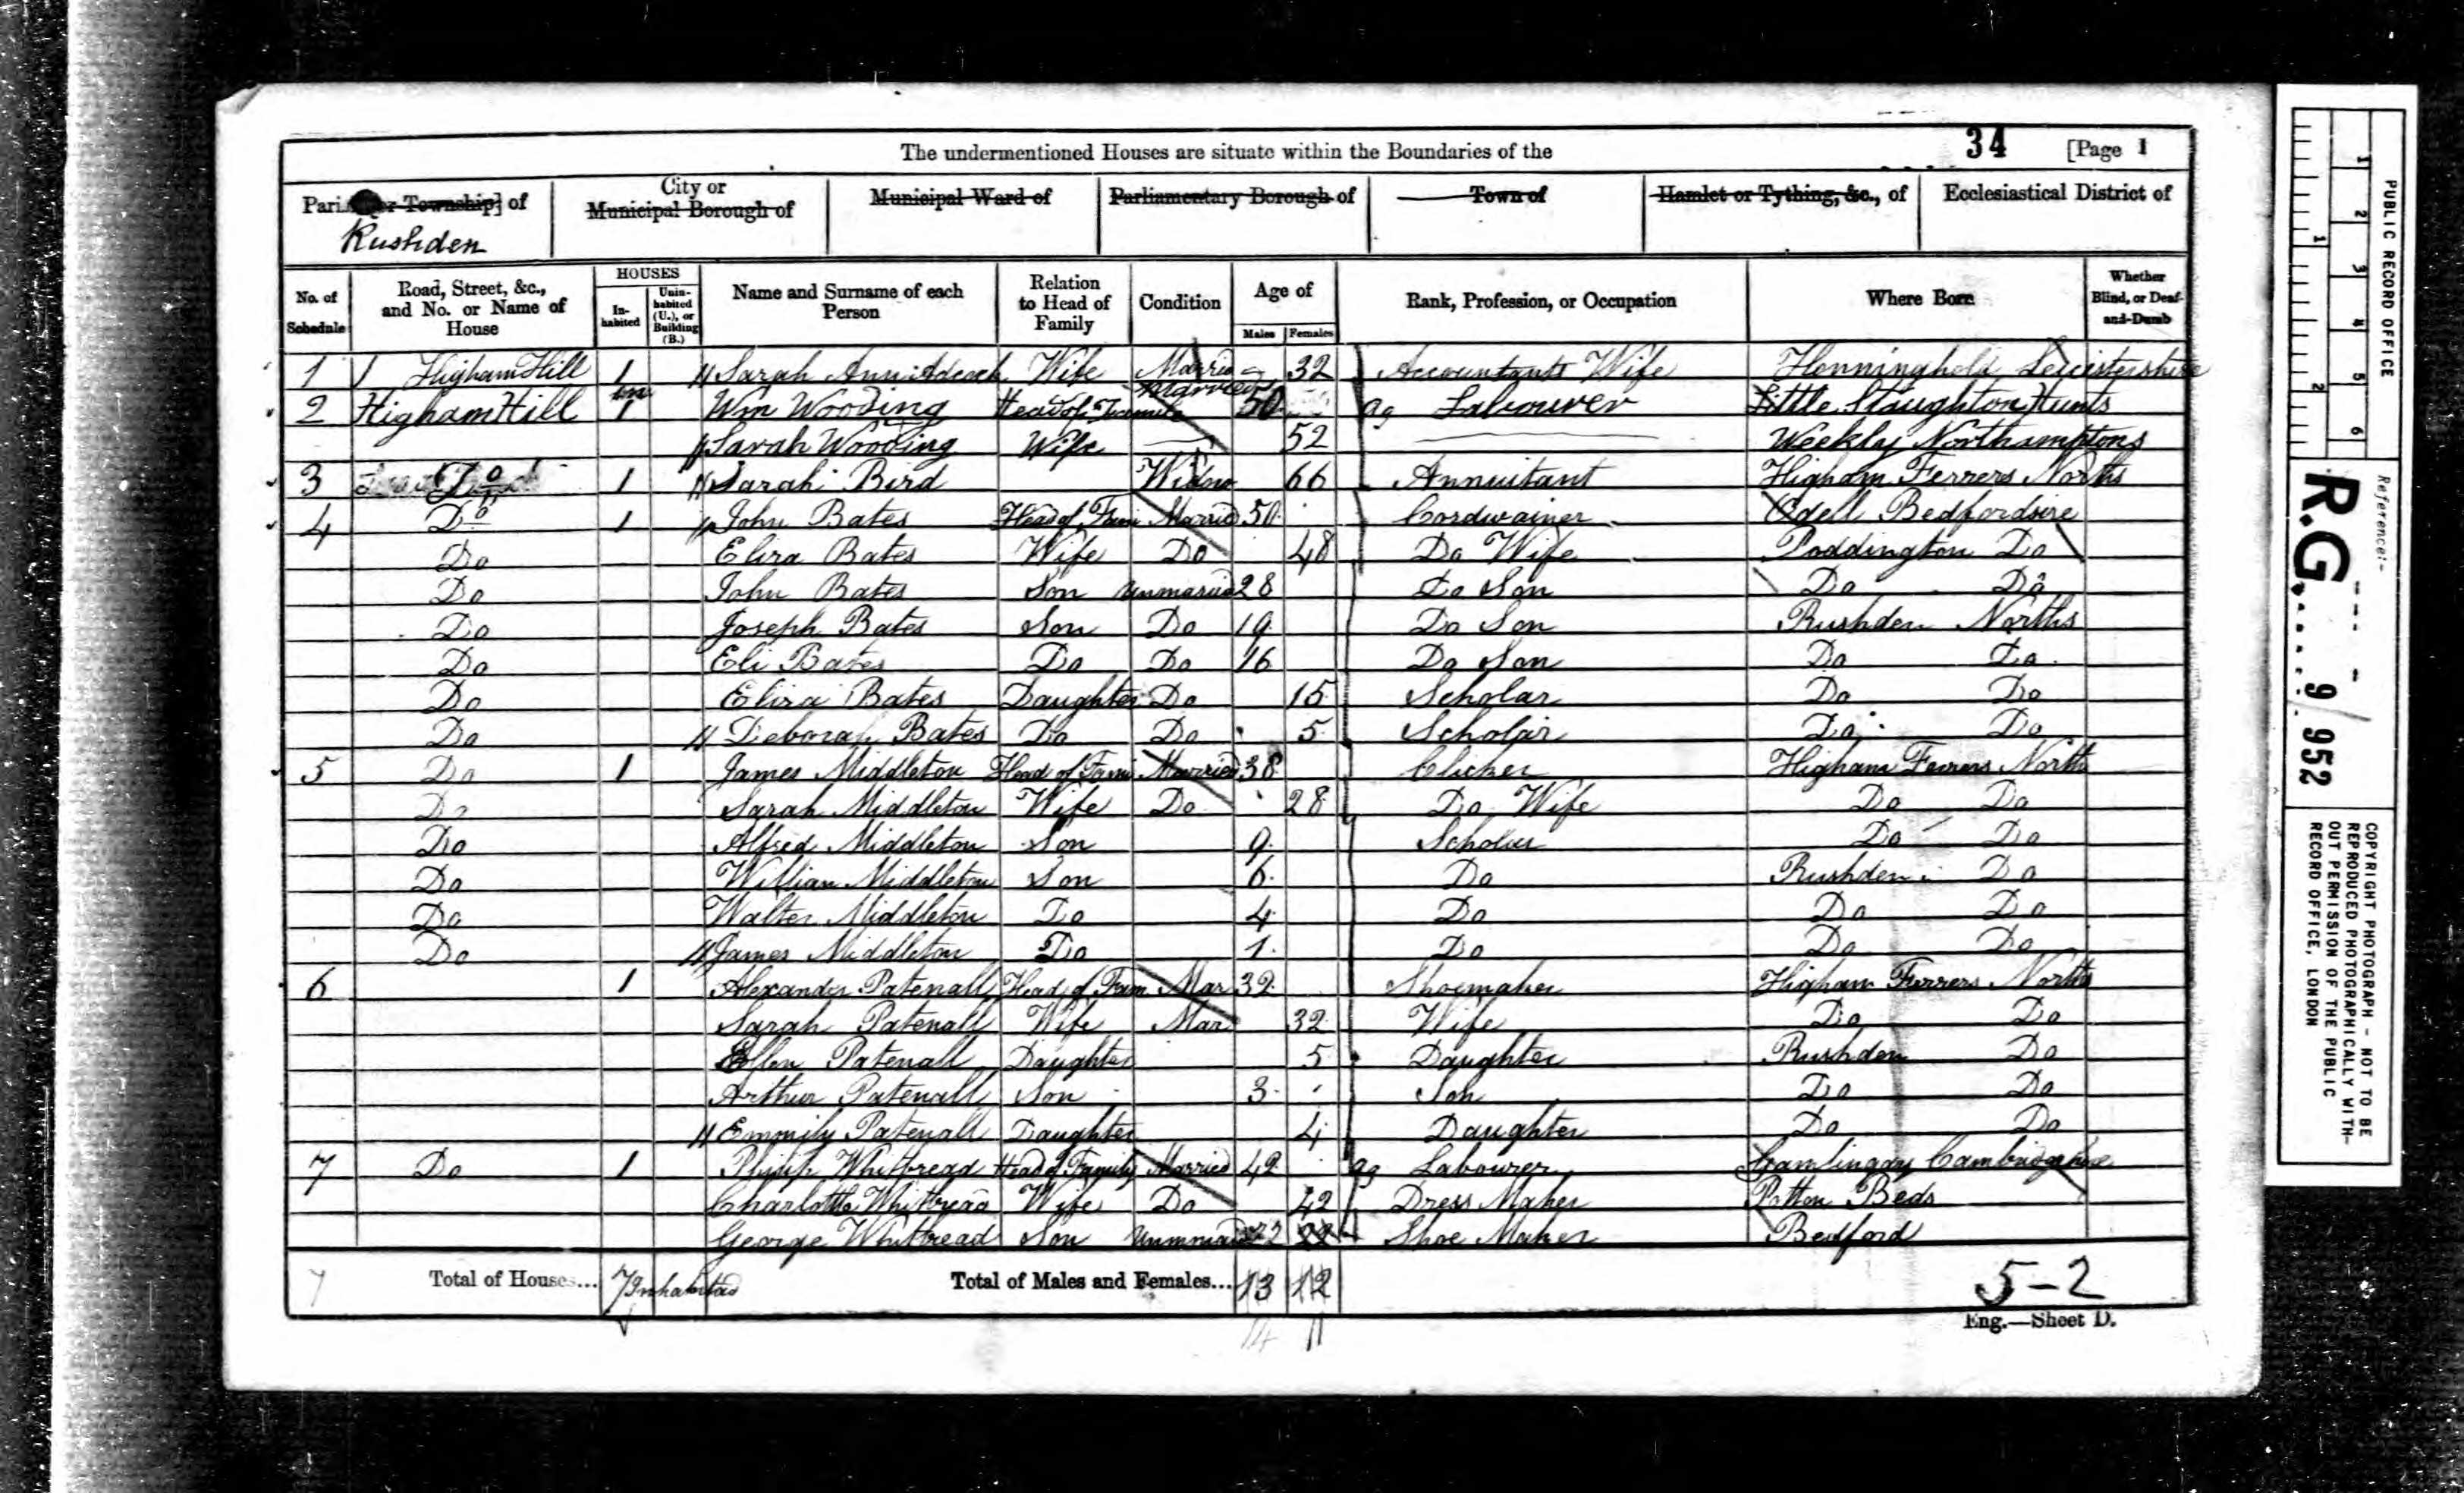 The undermentioned Houses are situate within the Boundaries of the 34 [Page 1
Pari or Township] of City or Municipal Borough of Municipal Ward of Parliamentary Borough of Town of Hamlet or Tything, &c., of Ecclesiastical District of
Rushden
No. of Schedule Road, Street, &c., and No. or Name of House HOUSES In-habited Unin-habited (U.), or Building (B.) Name and Surname of each Person Relation to Head of Family Condition Age of Males Females Rank, Profession, or Occupation Where Born Whether Blind, or Deaf-and-Dumb
1 1 Higham Hill 1 Sarah Ann Adcock Wife Married 32 Accountants Wife Leicestershire
2 Higham Hill 1 Wm Wooding Head of Married 50 Ag Labourer Little Staughton Hunts
Sarah Wooding Wife 52 Weekley Northamptons
3 Do 1 Sarah Bird Widow 66 Annuitant Higham Ferrers Norths
4 Do 1 John Bates Head of Fami Married 50 Cordwainer Odell Bedfordsire
Do Eliza Bates Wife Do 48 Do Wife Poddington Do
Do John Bates Son Unmarried 28 Do Son Do Do
Do Joseph Bates Son Do 19 Do Son Rushden Norths
Do Eli Bates Do Do 16 Do Son Do Do
Do Eliza Bates Daughter Do 15 Scholar Do Do
Do Deborah Bates Do Do 5 Scholar Do Do
5 Do 1 James Middleton Head of Fami Married 38 Clicker Higham Ferrers North
Do Sarah Middleton Wife Do 28 Do Wife Do Do
Do Alfred Middleton Son 9 Scholar Do Do
Do William Middleton Son 6 Do Rushden Do
Do Walter Middleton Do 4 Do Do Do
Do James Middleton Do 1 Do Do Do
6 1 Alexander Patenall Head of Fam Mar 32 Shoemaker Higham Ferrers Norths
Sarah Patenall Wife Mar 32 Wife Do Do
Ellen Patenall Daughter 5 Daughter Rushden Do
Arthur Patenall Son 3 Son Do Do
Emmily Patenall Daughter 4 Daughter Do Do
7 Do 1 Philip Whitbread Head of Family Married 42 Ag Labourer Gamlingay Cambridgeshire
Charlotte Whitbread Wife Do 42 Dress Maker Potton Beds
George Whitbread Son 22 22 Shoe Maker Bedford
7 Total of Houses... 7 Inhabited Total of Males and Females... 13 12 5-2
14 11
Eng.—Sheet D.
PUBLIC RECORD OFFICE
1 2 3 4 5 6
1 2
Reference:-
R.G. 9/952
COPYRIGHT PHOTOGRAPH - NOT TO BE
REPRODUCED PHOTOGRAPHICALLY WITH-
OUT PERMISSION OF THE PUBLIC
RECORD OFFICE, LONDON